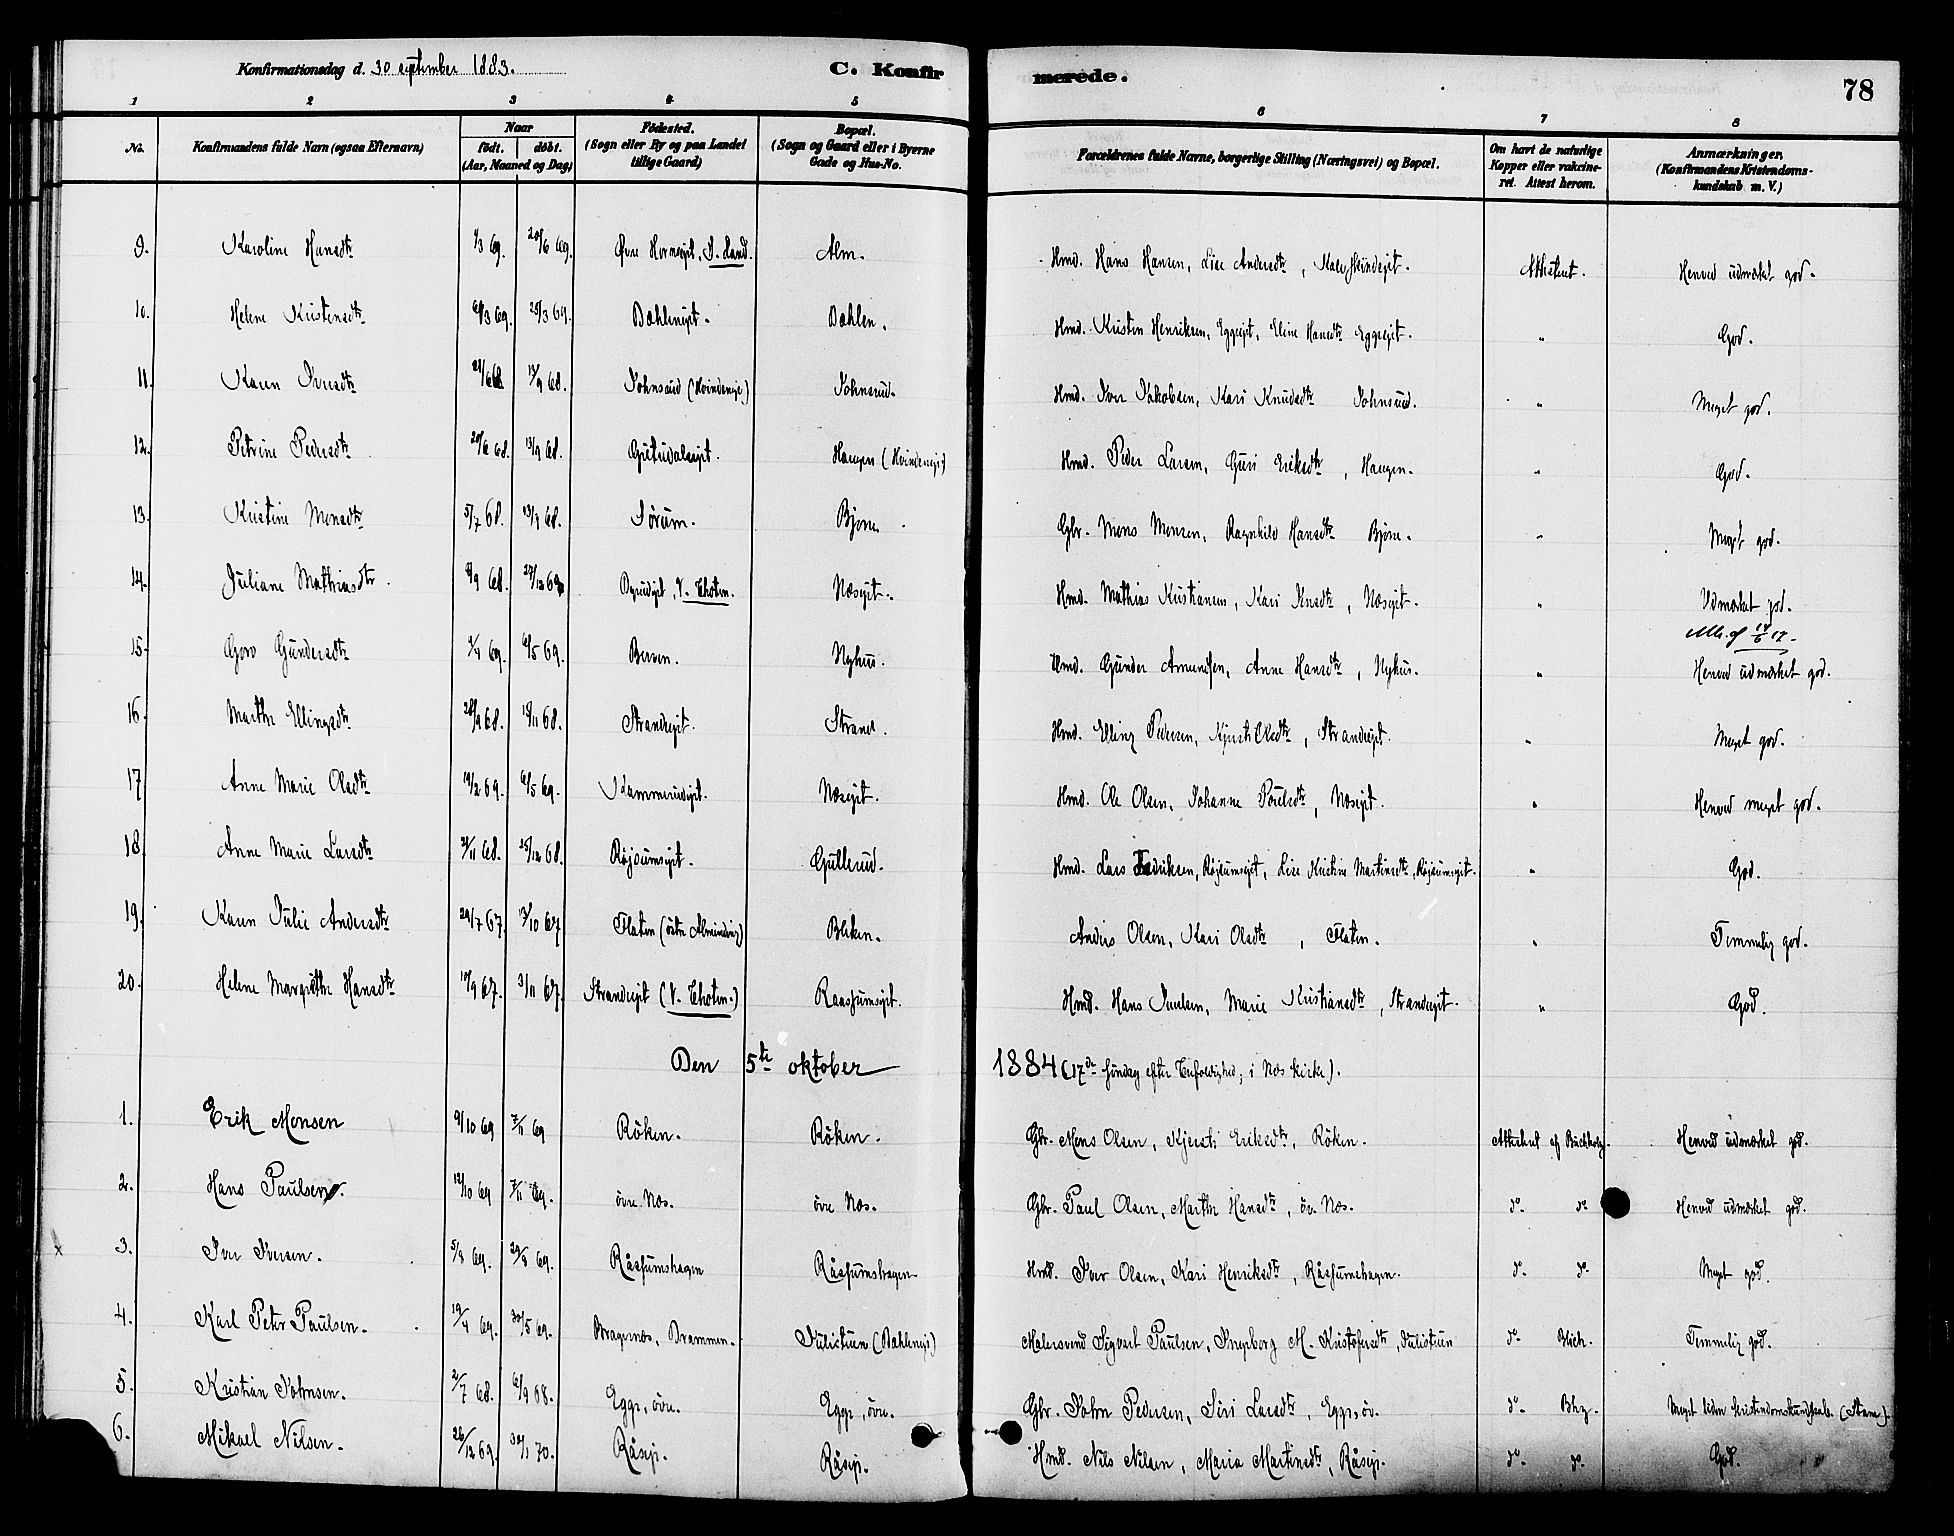 Konfirmationsdag d. 30 september 1883. C. Konfirmerede. 78
1 2 3 4 5 6 7 8
No. Konfirmandens fulde Navn (ogsaa Efternavn) Naar født. døbt. (Aar, Maaned og Dag) Fødested. (Sogn eller By og paa Landet tillige Gaard) Bopæl. (Sogn og Gaard eller i Byerne Gade og Hus-No. Forældrenes fulde Navne, borgerlige Stilling (Næringsvei) og Bopæl. Om havt de naturlige Kopper eller vakcineret. Attest herom. Anmærkninger. (Konfirmandens Kristendomskundskab m. V.)
9. Karoline Hansdtr 1/3 69. 20/6 69. Øvre S. Land. Alm. Hmd. Hans Hansen, Lise Andersdtr, Attesteret. Henved udmærket god.
10. Helene Kristensdtr 69. 28/3 69. Dæhlenejet. Dæhlen. Hmd. Kristen Henriksen, Eggeejet, Eline Hansdtr Eggeejet. " God.
11. Karen Iversdtr 13/9 68. Johnsrud (Hvindeneje) Johnsrud. Hmd. Iver Jakobsen, Kari Knudsdtr Johnsrud. " Meget god.
12. Petrine Pedersdtr 20/6 68. 13/9 68. Haugen (Hvindeneje) Hmd. Peder Larsen, Guri Eriksdtr, Haugen. " God.
13. Kristine Monsdtr 5/7 68. 13/9 68. Sørum. Bjone. Gbr. Mons Monsen, Ragnhild Hansdtr Bjone. " Meget god.
14. Juliane Mathiasdtr. 9 68. 27/12 68. V. Thoten. Næsejet. Hmd. Mathias Kristiansen, Kari, Næsejet. " Udmærket god.
15. Goro Gundersdtr 69. 6/5 69. Nyhus. Hmd. Gunder Amundsen, Anne Hansdtr, Nyhus. " Henved udmærket god.
16. Marthe Ellingsdtr 28/9 68. 68. Strandejet. Strand. Hmd. Elling Pedersen, Kjersti Olsdtr, Strandejet. " Meget god.
17 Anne Marie Olsdtr 19/2 69. 6/5 69. Kammerudejet. Næsejet. Hmd. Ole Olsen, Johanne Poulsdtr, Næsejet. " Henved meget god.
18. Anne Marie Larsdtr 11 68. 25/12 68. Røjsumsejet. Gullerud. Hmd. Lars Fredriksen, Røjsumsejet, Lise Kristine Martinsdtr, Røjsumsejet. " God.
19. Karen Julie Andersdtr 29/7 67. 13/10 67 Flaten (østre Alminding) Bliken. Anders Olsen, Kari Olsdtr, Flaten. " Temmelig god.
20. Helene Margrethe Hansdtr 10/9 67. 3/11 67. Strandejet (V. Thoten.) Raassumsejet. Hmd. Hans Juulsen, Marie Kristiansdtr, Strandejet. " God.
Den 5te oktober 1884 (17de søndag efter Trefoldighed; i Næs kirke).
1. Erik Monsen 9/10 69 7/11 69 Röken. Röken. Gbr. Mons Olsen, Kjersti Eriksdtr, Röken. Attesteret af Buchholz. Henved udmærket god.
2. Hans Paulsen. 12/10 69 7/11 69. övre Næs. övre Næs. Gbr. Paul Olsen, Marthe Hansdtr, öv. Næs. do. do Henved udmærket god.
x 3. Iver Iversen. 5/8 69. 29/8 69. Råssumshagen Råssumshagen Hmd. Iver Olsen, Kari Henriksdtr, Råssumshagen. do. do. Meget god.
4. Karl Peter Paulsen. 19/4 69. 30/5 69. Bragernæs, Drammen. Julistuen (Dæhleneje) Malersvend Sigvart Paulsen, Ingeborg M. Kristofersdtr, Julistuen do. Temmelig god.
5. Kristian Johnsen. 2/7 68. 6/9 68. Egge, övre. Egge, övre. Gbr. John Pedersen, Siri Larsdtr, Egge, öv. do. Bhz. Meget liden kristendomskundskab. (Stam).
6. Mikael Nilsen. 26/12 69. 30/1 70. Råseje. Råseje. Hmd. Nils Nilsen, Maria Martinsdtr, Råseje. do. do. God.